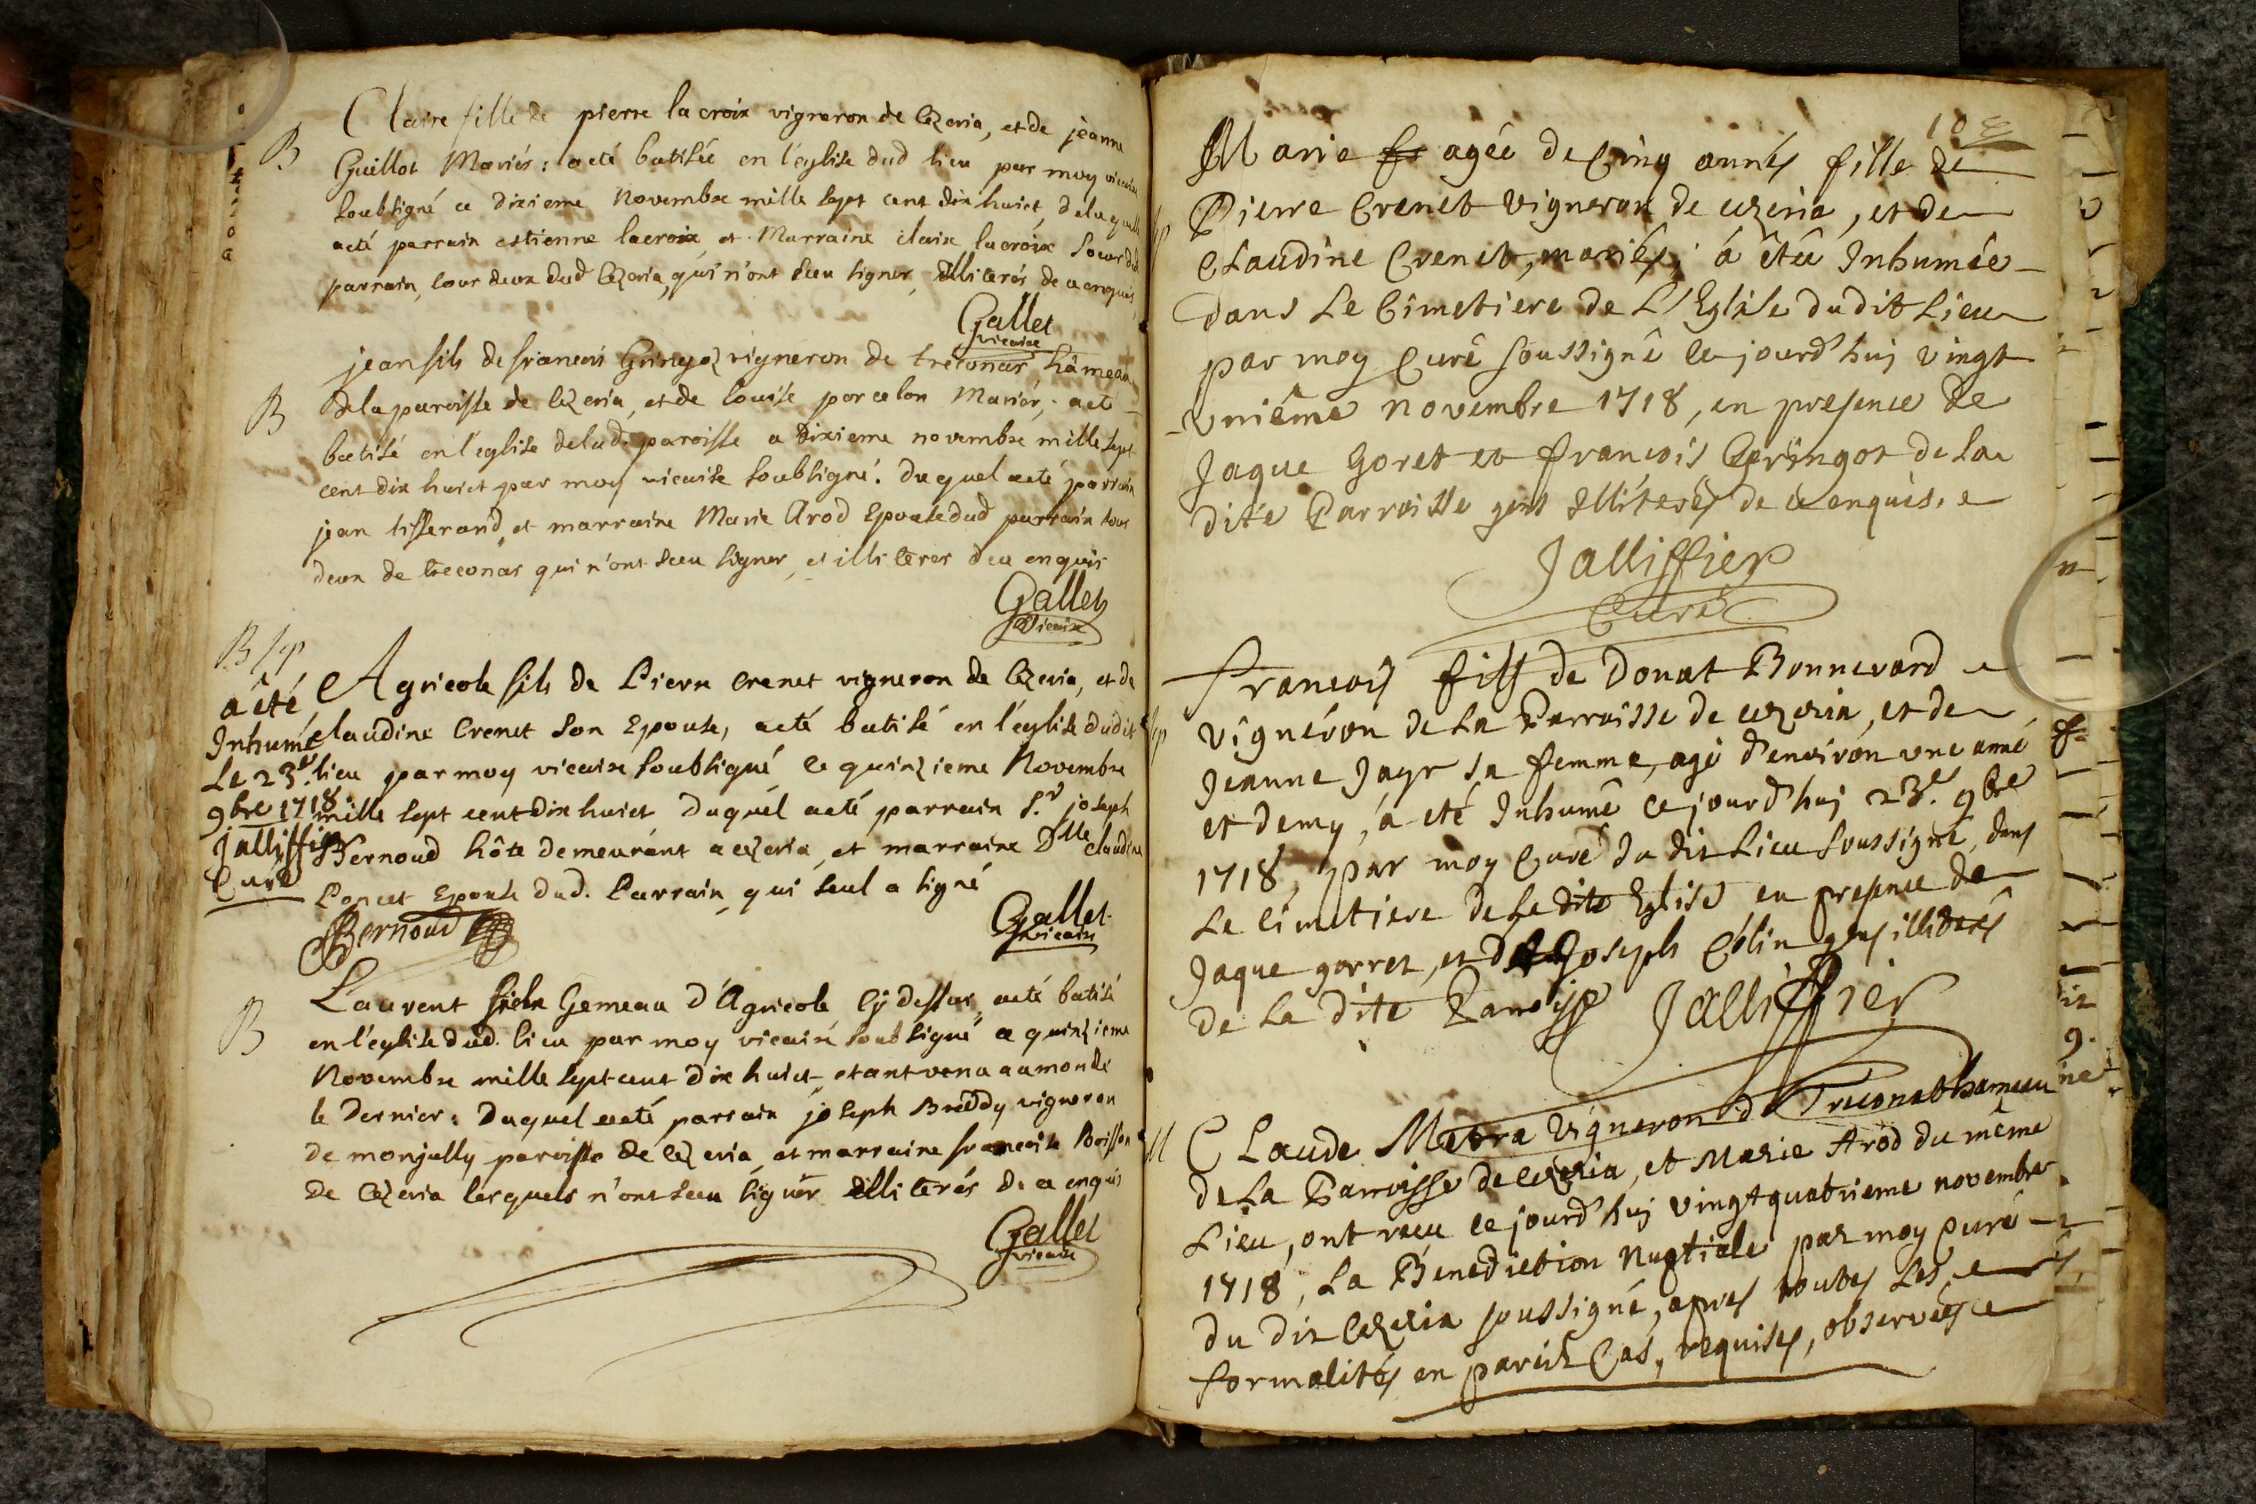 Claire fille de pierre lacroix vigneron de Cezeria, et de jeanne
B
Guillot Mariés: a eté batisée en l'eglise dud lieu par moy vicaire
soubsigné ce dixieme Novembre mille sept cent dix huict, de laquelle
a eté parrain estienne lacroix et Marraine claire lacroix soeur dud
parrain, tous deux dud Cezeria, qui n'ont sceu signer, illiterés de ce enquis
Gallet
vicaire
jean fils de francois Gringoz vigneron de treconas hameau
B
de la paroisse de Cezeria, et de louise porcelon Mariés, a eté
batisé en l'eglise de lad. paroisse ce dixieme novembre mille sept
cent dix huict par moy vicaire soubsigné. duquel a eté parrain
jean tisserand, et marraine Marie Arod Epouse dud parrain tous
deux de treconas qui n'ont sceu signer, et illiteres de ce enquis
Gallet
Vicaire
B Sep
a été
Inhumé
Le 23e.
9bre 1718.
Jalliffier
Curé
Agricole fils de Pierre Crenet vigneron de Cezeria, et de
claudine Crenet son Epouse, a eté batisé en l'eglise dudit
lieu par moy vicaire soubsigné ce quinzieme Novembre
mille sept cent dix huict duquel a eté parrain S.r joseph
Bernoud hôte demeurant a cezeria, et marraine Dlle claudine
Poncet Epouse dud. Parrain, qui seul a signé
Bernoud
Gallet
vicaire
B
Laurent frere Gemeau d'Agricole Cy dessus, a eté batisé
en l'eglise dud. lieu par moy vicaire soubsigné ce quinzieme
Novembre mille sept cent dix huict, etant venu au monde
le dernier: duquel a eté parrain joseph Breddy vigneron
de monjully paroisse de Cezeria, et marraine francoise Boisson
de Cezeria lesquels n'ont sceu signer illiterés de ce enquis
Gallet
vicaire
10
Marie agée de Cinq années fille de
Pierre Crenet vigneron de cezeria, et de
Claudine Crenet, mariés; à êtée Inhumée
dans Le Cimetiere de L'Eglise dudit Lieu
par moy Curé soussigné ce jourd'huy vingt
-Vniême novembre 1718, en presence de
Jaque Goret et françois Gringot de la
dite Parroisse gens illiterés de ce enquis.
Jalliffier
Curé
françois fils de Donat Bonnevard
Sep
vigneron de La Parroisse de cezeria, et de
Jeanne Jayr sa femme, agé d'environ vne anné
et demy, à eté Inhumê ce jourd'huy 23e. 9bre
1718, par moy Curé du dit Lieu soussigné, dans
Le Cimetiere de Le dite Eglise en presence de
Jaque gorret, et de Joseph Célin gens illiterés
de La dite Parroisse Jalliffier
M
Claude Metra Vigneron de Treconat hameau
de La Parroisse de cezeria, et Marie Arod du même
Lieu, ont recu ce jourd'huy vingt quatrieme novembre
1718, La Benediction Nuptiale par moy curé
du dit Cezeria soussigné, apres toutes Les
formalités en pareil Cas, requises, observées